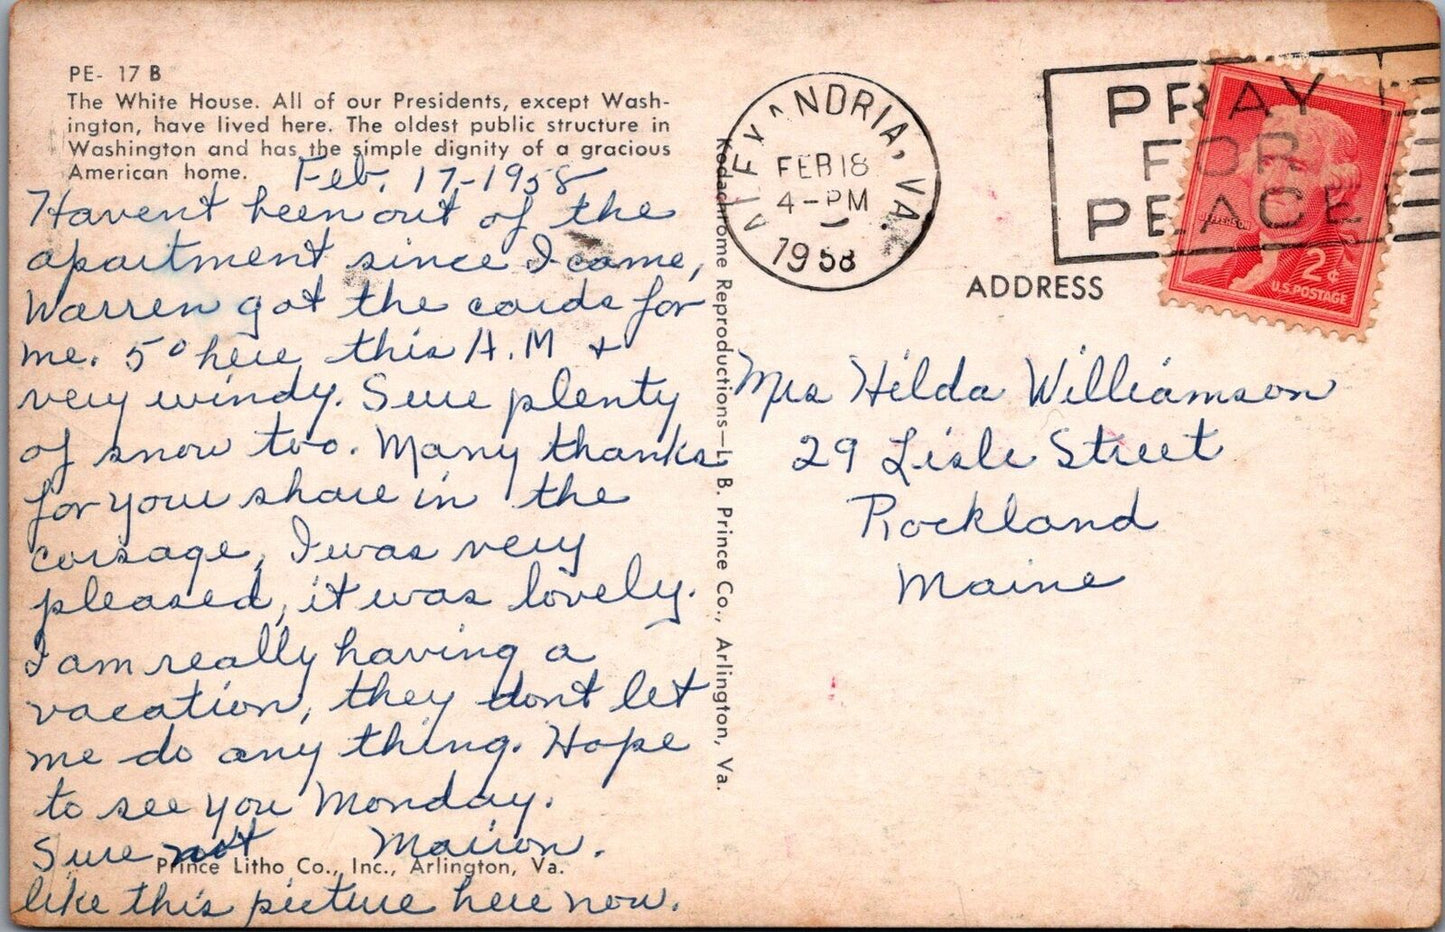 PE- 17 B
The White House. All of our Presidents, except Wash-
ington, have lived here. The oldest public structure in
Washington and has the simple dignity of a gracious
American home.
Feb. 17-1958
Havent been out of the
apartment since I came,
Warren got the cards for
me. 5° here this A.M +
very windy. Sure plenty
of snow too. Many thanks
for your share in the
corsage, I was very
pleased, it was lovely.
I am really having a
vacation, they dont let
me do any thing. Hope
to see you Monday.
Marion.
Sure not
like this picture here now.
Prince Litho Co., Inc., Arlington, Va.
Kodachrome Reproductions—L. B. Prince Co., Arlington, Va.
ALEXANDRIA, VA.
FEB 18
4-PM
1958
PRAY
FOR
PEACE
JEFFERSON
2¢
U.S. POSTAGE
ADDRESS
Mrs Hilda Williamson
29 Lisle Street
Rockland
Maine